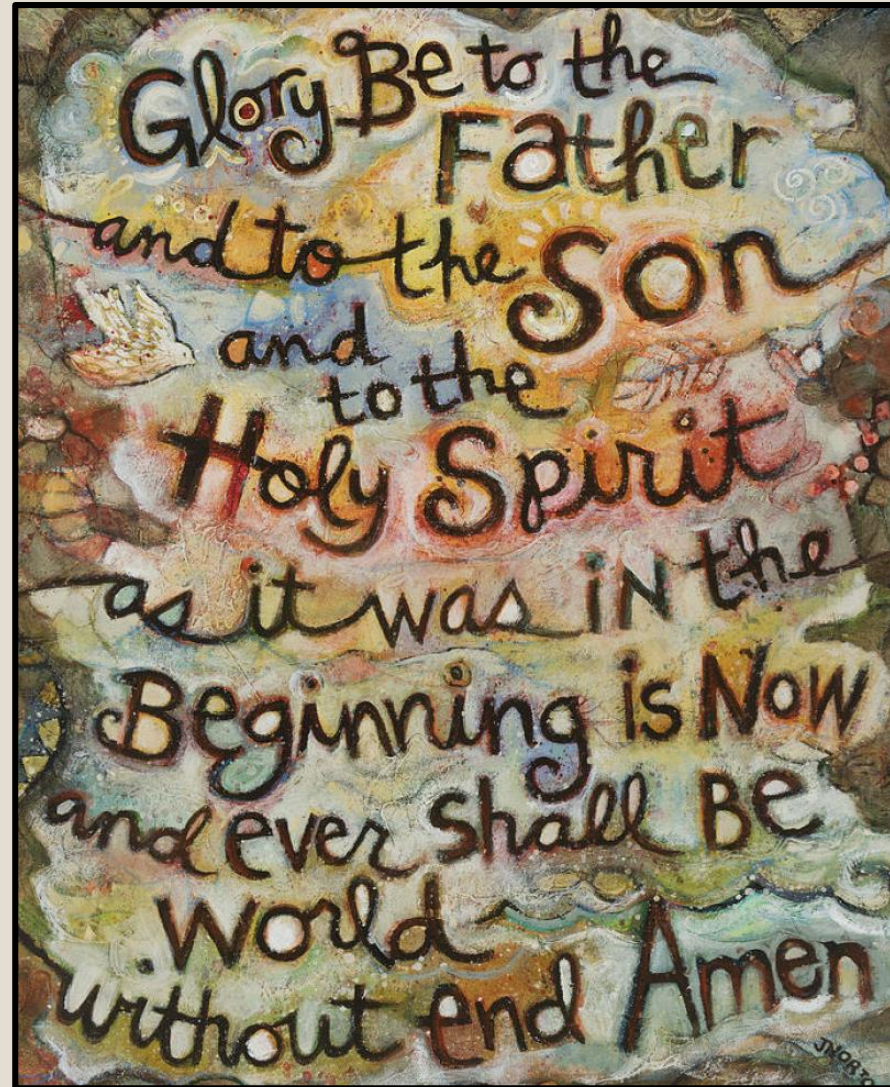 Glory Be to the
Father
and to the Son
and
to the
Holy Spirit
as it was iN the
Beginning is Now
and ever shall Be
World
without end Amen